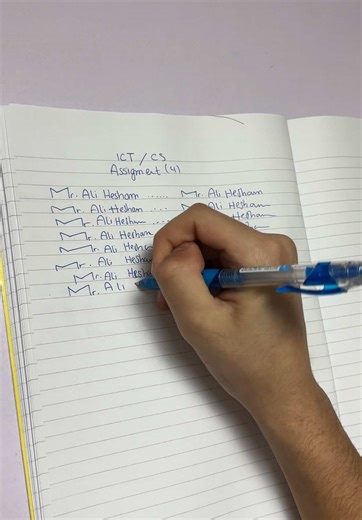 ICT / CS
Assigment (4)
Mr. Ali Hesham ...... Mr. Ali Hesham
Mr. Ali Hesham .... Mr. Ali Hesham
Mr. Ali Hesham ..... Hesham
Mr. Ali Hesham
Mr. Ali Hesham
Mr. Ali Hesham
Mr. Ali Hesha
Mr. Ali